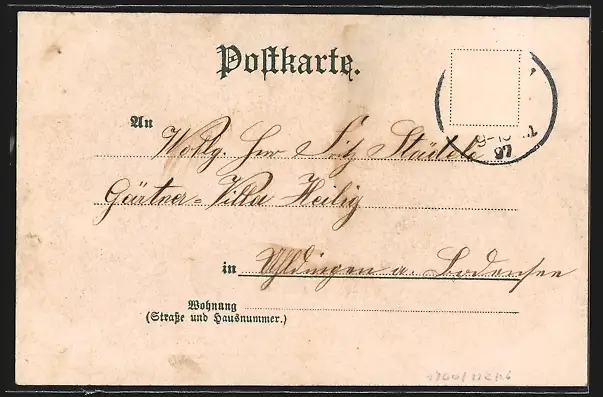 Postkarte.
An Wollg. Herr Fritz Städele
Gärtner = Villa Heilig
in Uhldingen a. Bodensee
Wohnung
(Straße und Hausnummer.)
97